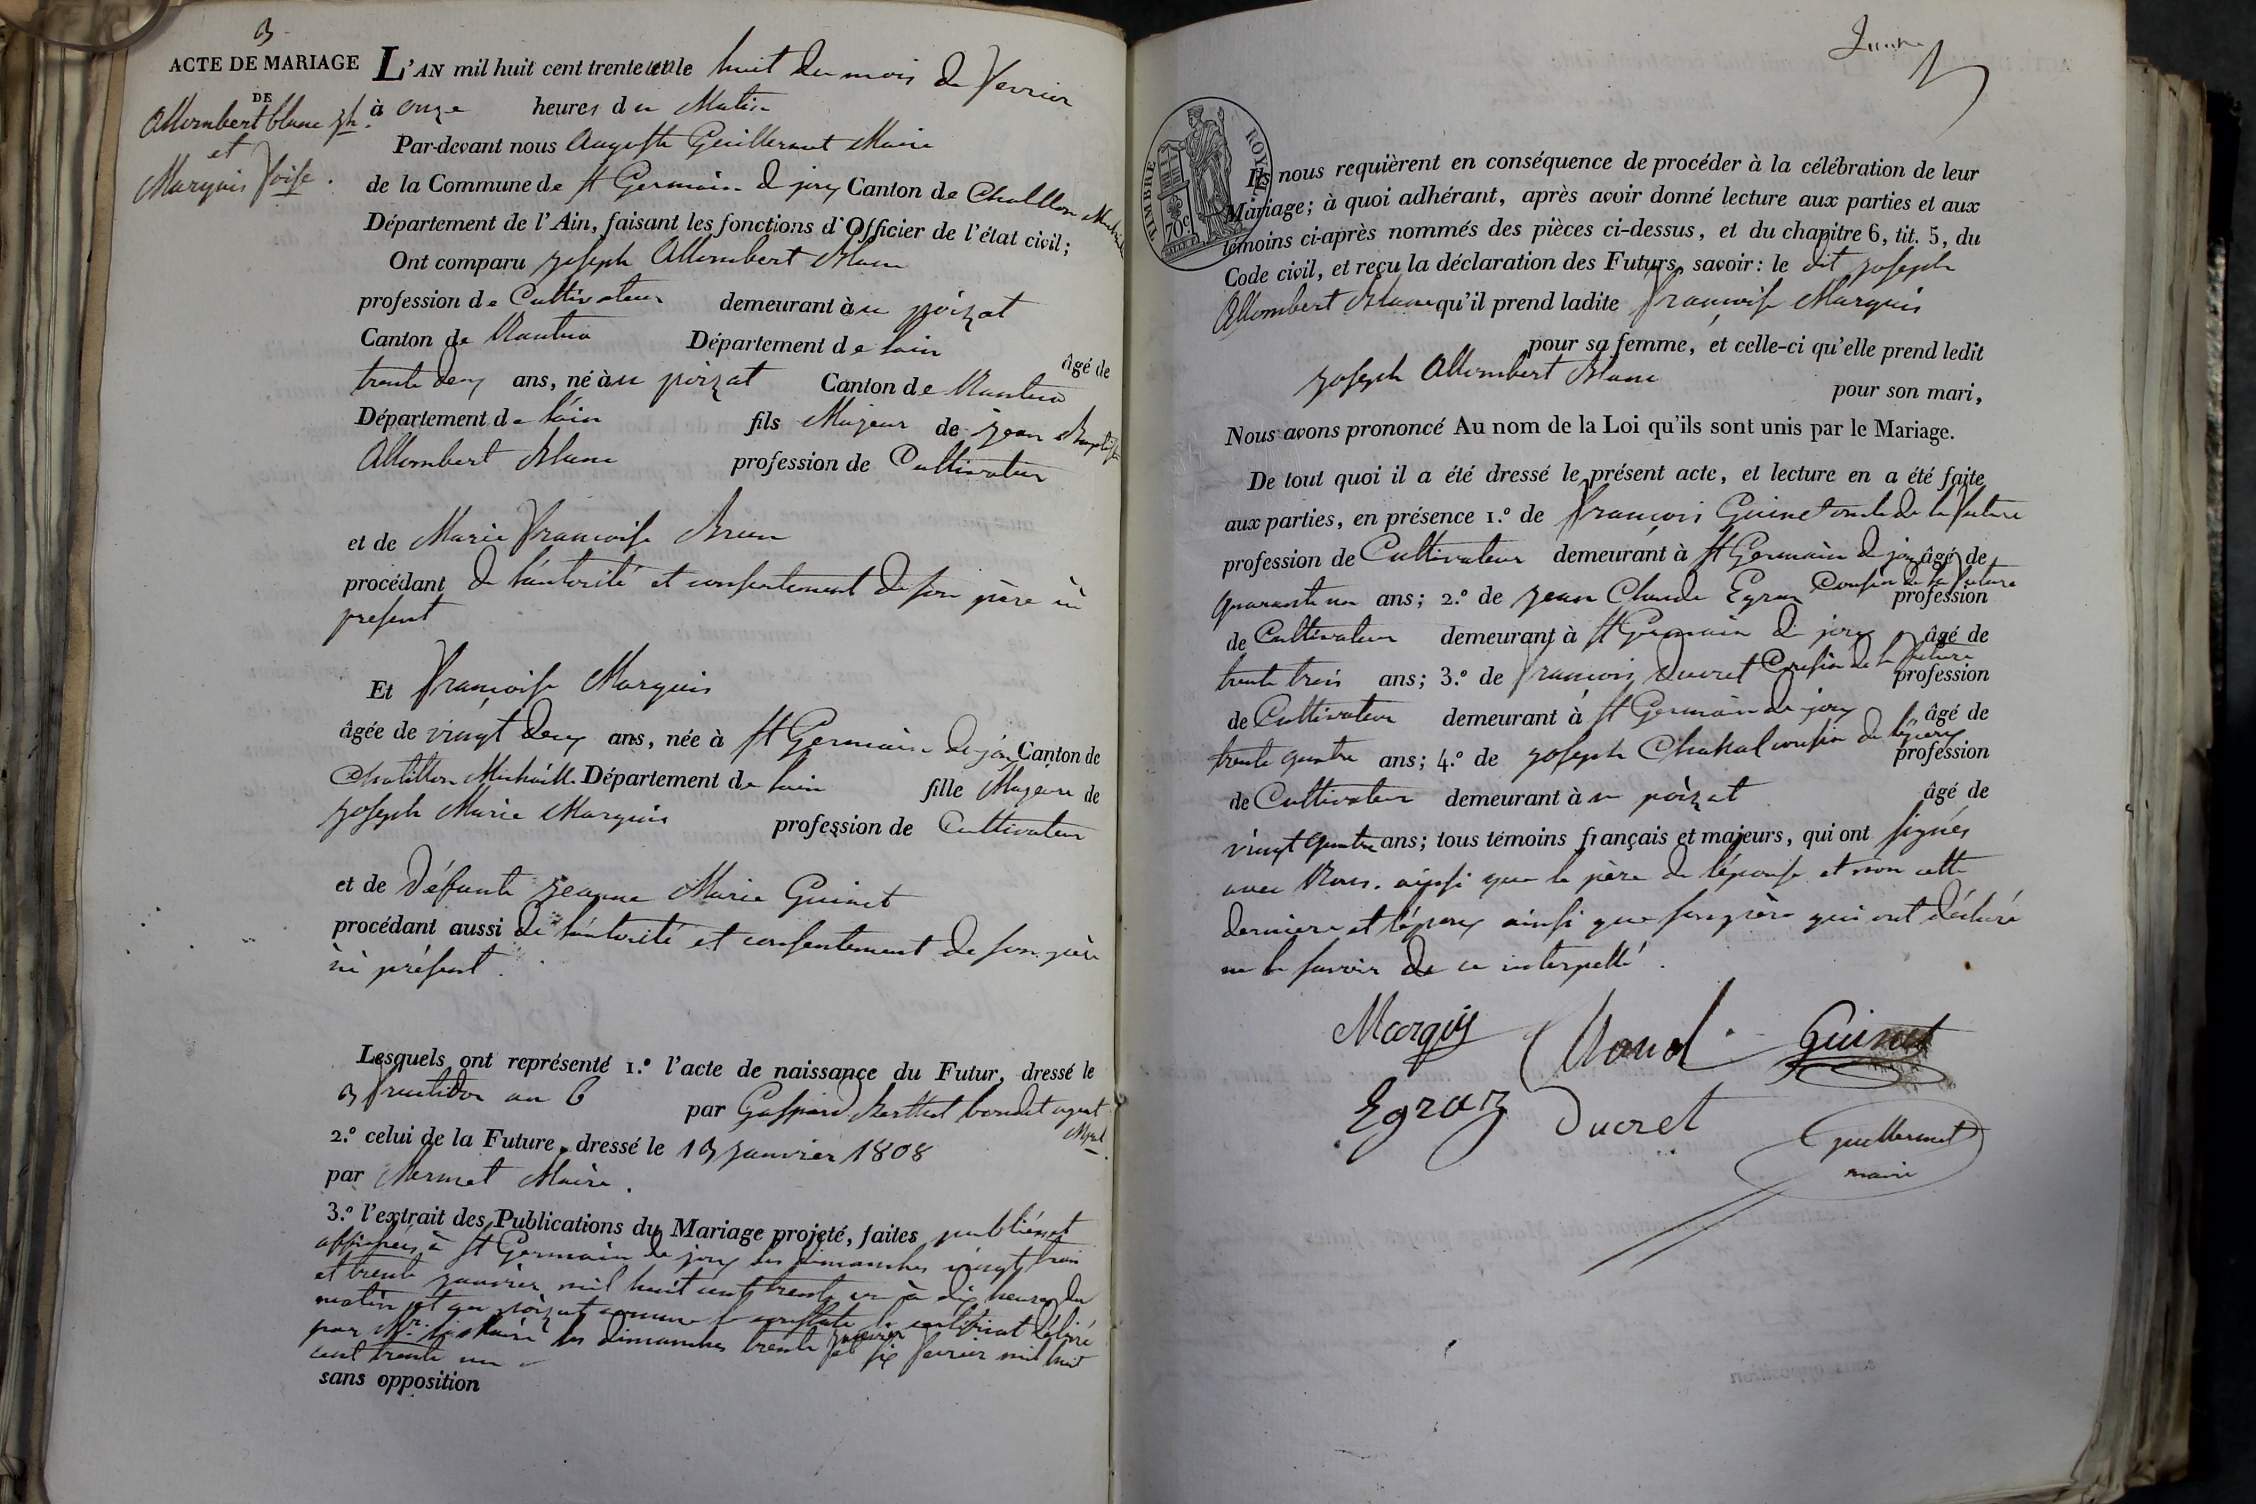 3
ACTE DE MARIAGE
DE
Allombert blanc jh.
et
Marquis foise.
L'AN mil huit cent trente un le huit du mois de fevrier
à onze heures du Matin
Par-devant nous Auguste Guillermet Maire
de la Commune de st Germain de joux Canton de Chatillon Michaille
Département de l'Ain, faisant les fonctions d'Officier de l'état civil;
Ont comparu joseph Allombert Blanc
profession de Cultivateur demeurant àu poizat
Canton de Nantua Département de lain âgé de
trente deux ans, né àu poizat Canton de Nantua
Département de l'ain fils Majeur de jean Baptiste
Allombert Blanc profession de Cultivateur
et de Marie françoise Brun
procédant de l'autorité et consentement de son père ici
present
Et françoise Marquis
âgée de vingt deux ans, née à st Germain de joux Canton de
Chatillon Michaille Département de lain fille Majeure de
joseph Marie Marquis profession de Cultivateur
et de défunte jeanne Marie Guinet
procédant aussi de l'autorité et consentement de son père
ici présent.
Lesquels ont représenté 1.º l'acte de naissance du Futur, dressé le
3 fructidor an 6 par Gaspard Berthet bondet agent
Mpal.
2.º celui de la Future, dressé le 13 janvier 1808
par Mermet Maire.
3.º l'extrait des Publications du Mariage projeté, faites publiées et
affichées à st Germain de joux les dimanches vingt trois
et trente janvier mil huit cent trente un à dix heures du
matin et au poizat comme le constate le certificat délivré
par Mr. le Maire les dimanches trente janvier et six fevrier mil huit
cent trente un
sans opposition
TIMBRE ROYAL
70c
Ils nous requièrent en conséquence de procéder à la célébration de leur
Mariage; à quoi adhérant, après avoir donné lecture aux parties et aux
témoins ci-après nommés des pièces ci-dessus, et du chapitre 6, tit. 5, du
Code civil, et reçu la déclaration des Futurs, savoir: le dit joseph
Allombert Blanc qu'il prend ladite françoise Marquis
pour sa femme, et celle-ci qu'elle prend ledit
joseph Allombert Blanc pour son mari,
Nous avons prononcé Au nom de la Loi qu'ils sont unis par le Mariage.
De tout quoi il a été dressé le présent acte, et lecture en a été faite
aux parties, en présence 1.º de françois Guinet oncle de la future
profession de Cultivateur demeurant à st Germain de joux âgé de
quarante un ans; 2.º de jean Claude Egraz Cousin de la future profession
de Cultivateur demeurant à st Germain de joux âgé de
trente trois ans; 3.º de françois Ducret Cousin de la future profession
de Cultivateur demeurant à st Germain de joux âgé de
trente quatre ans; 4.º de joseph cousin de l'époux profession
de Cultivateur demeurant àu poizat âgé de
vingt quatre ans; tous témoins français et majeurs, qui ont signés
avec Nous. ainsi que le père de l'épouse et non cette
derniere et l'époux ainsi que son père qui ont déclaré
ne le savoir de ce interpellé.
Marquis Guinet
Egraz Ducret
Guillermet
maire